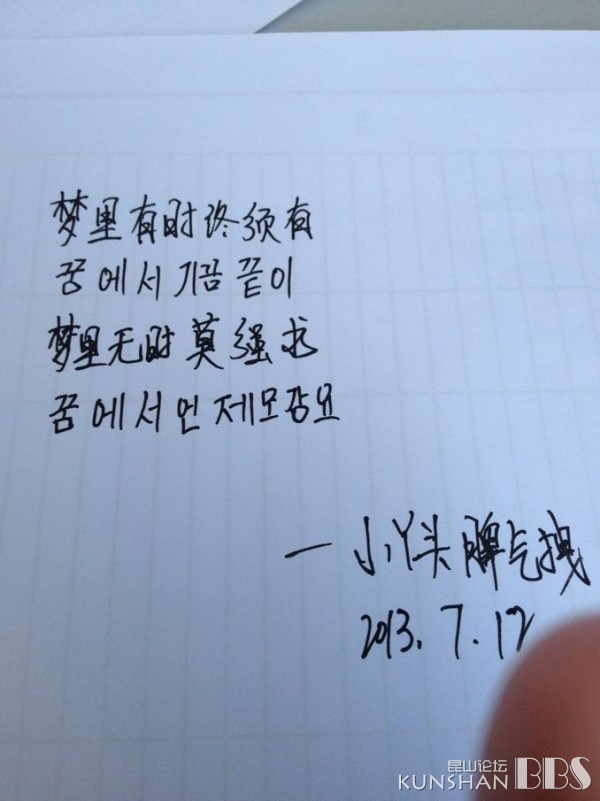 梦里有时终须有
꿈에서 기끔 끝이
梦里无时莫强求
꿈에서언제모강요
一小丫头脾气拽
2013.7.12
昆山论坛
KUNSHAN BBS